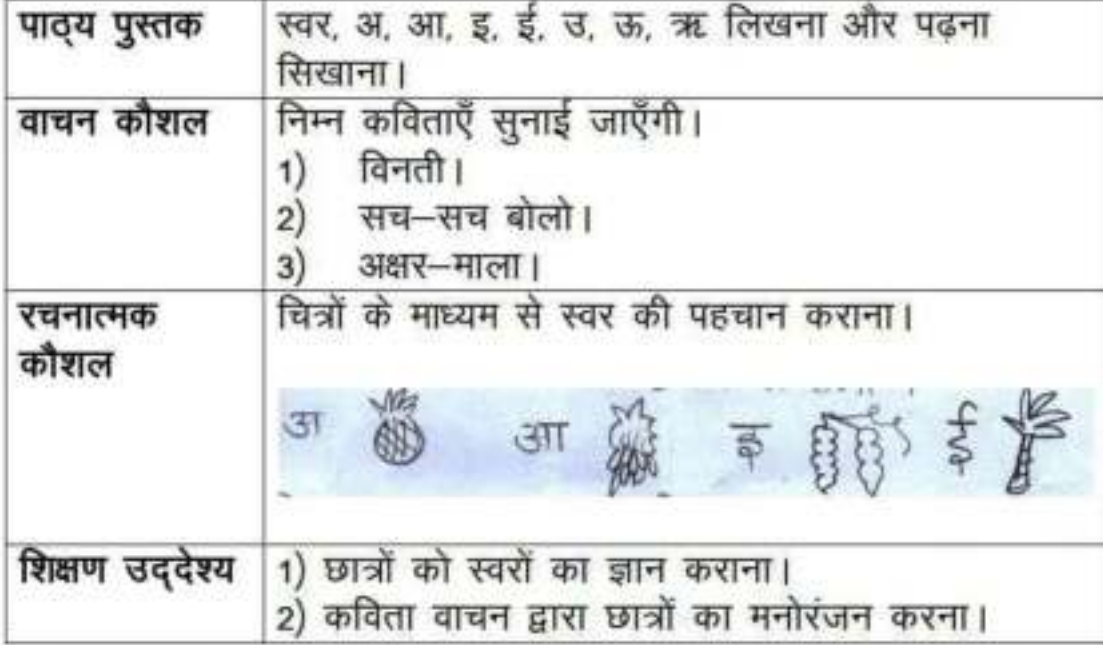 पाठ्य पुस्तक
स्वर, अ, आ, इ, ई, उ, ऊ, ऋ लिखना और पढ़ना
सिखाना।
वाचन कौशल
निम्न कविताएँ सुनाई जाएँगी।
1) विनती।
2) सच–सच बोलो।
3) अक्षर–माला।
रचनात्मक
कौशल
चित्रों के माध्यम से स्वर की पहचान कराना।
अ आ इ ई
शिक्षण उद्देश्य
1) छात्रों को स्वरों का ज्ञान कराना।
2) कविता वाचन द्वारा छात्रों का मनोरंजन करना।